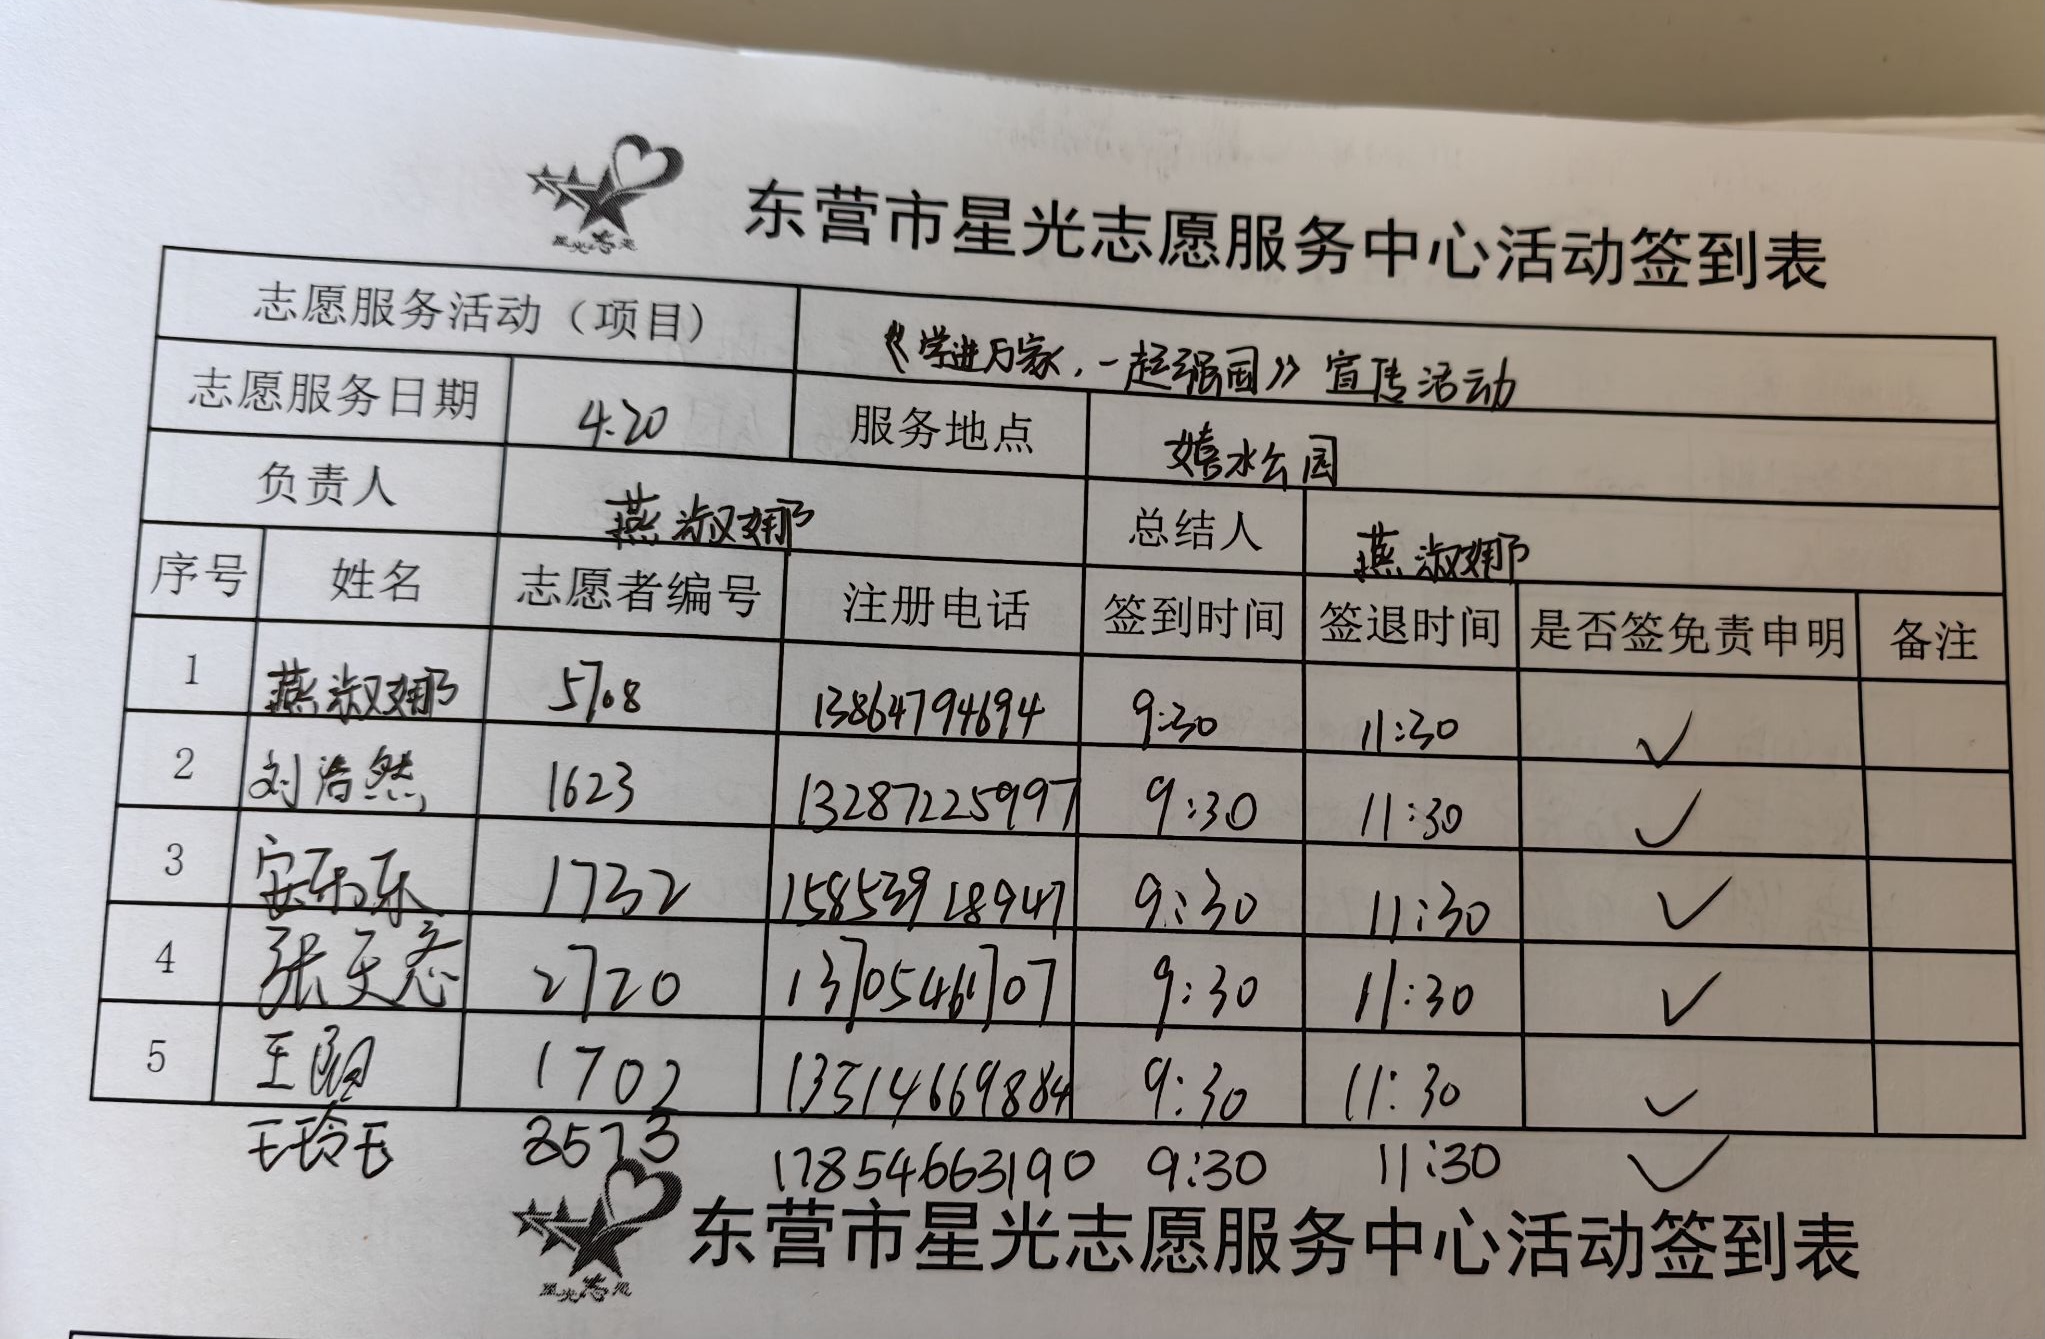 东营市星光志愿服务中心活动签到表
志愿服务活动（项目） 《学进万家，一起强国》宣传活动
志愿服务日期 4.20 服务地点 嬉水公园
负责人 燕淑娜 总结人 燕淑娜
序号 姓名 志愿者编号 注册电话 签到时间 签退时间 是否签免责申明 备注
1 燕淑娜 5708 13864794694 9:30 11:30 ✓
2 刘浩然 1623 13287225997 9:30 11:30 ✓
3 安乐乐 1732 15853918947 9:30 11:30 ✓
4 张 2720 13705461707 9:30 11:30 ✓
5 王 1702 13514669884 9:30 11:30 ✓
王玲玉 8573 17854663190 9:30 11:30 ✓
东营市星光志愿服务中心活动签到表